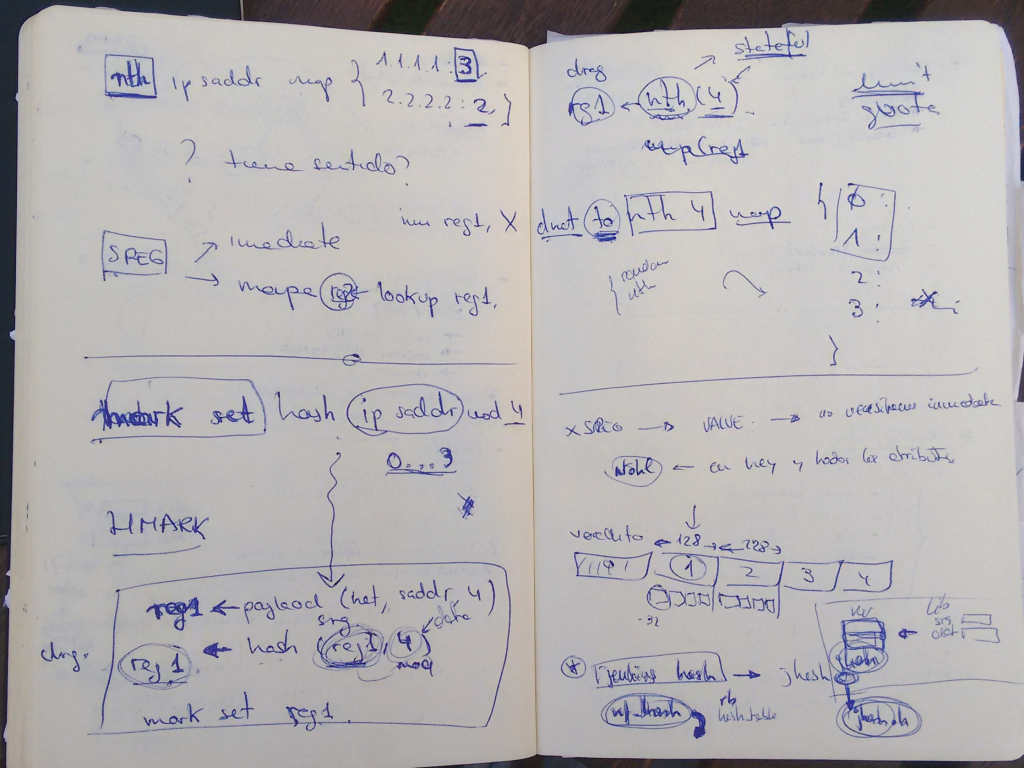 nth ip saddr map { 1.1.1.1 : 3
2.2.2.2 : 2 }
? tiene sentido?
imm reg1, X
SREG → imediate
→ mapa reg2 ← lookup reg1,
mark set hash ip saddr mod 4
0...3
HMARK
reg1 ← payload (net, saddr, 4)
sreg data
dreg. reg1 ← hash (reg1, 4)
mod
mark set reg1.
stateful
dreg
reg1 ← nth (4)
map (reg1
limit
quota
dnat to nth 4 map { 0 :
1 :
2 :
3 :
}
{ random
nth
x SREG → VALUE → no immediate
ntohl ← en key y
128 ↔ 128
1 2 3 4
-32
lib
src
dst
jhash
* jenkins hash → jhash
nf_hash rb
hash table